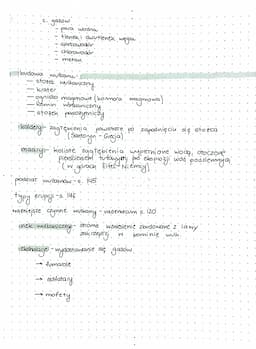 2. gazów
- para wodna
- tlenek i dwutlenek węgla
- siarkowodór
- chlorowodór
- metan
budowa wulkanu
- stożek wulkaniczny
- krater
- ognisko magmowe (komora magmowa)
- komin wulkaniczny
- stożek pasożytniczy
kaldery - zagłębienia powstałe po zapadnięciu się stożka
(Santoryn - Grecja)
maary - koliste zagłębienia wypełnione wodą, otoczone
pierścieniem tufowym po eksplozji wód podziemnych
(w górach Eifel - Niemcy)
podział wulkanów - s. 145
typy erupcji - s. 146
ważniejsze czynne wulkany - vademecum s. 120
nek wulkaniczny - strome wzniesienie zbudowane z lawy
zakrzepłej w kominie wulk.
ekshalacje - wydobywanie się gazów
→ fumarole
→ solfatary
→ mofety